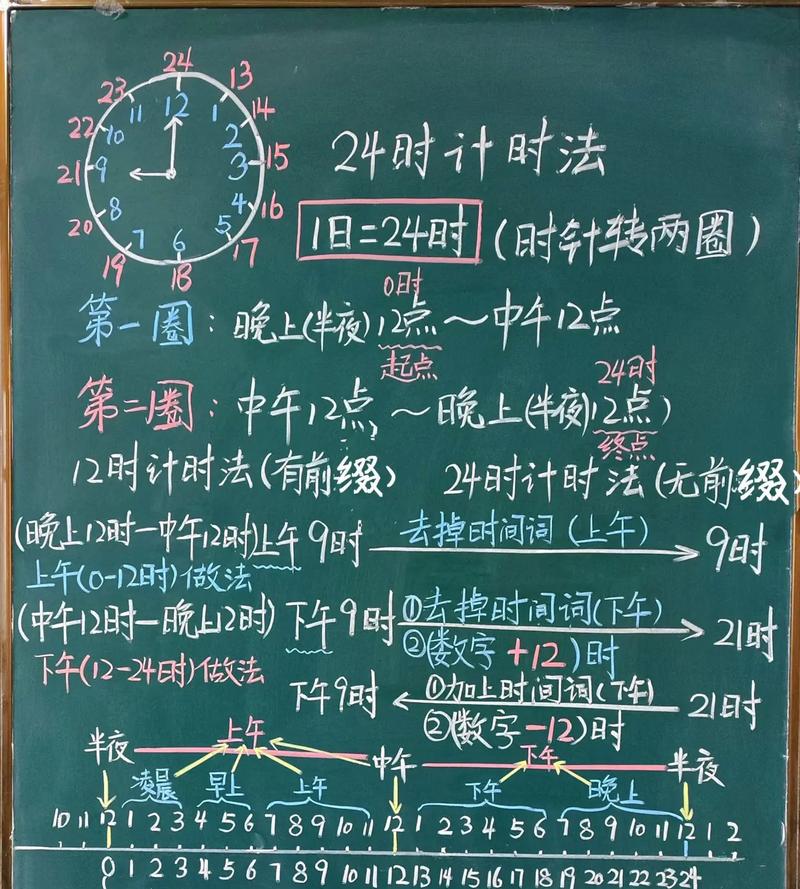 24
23 13
11 12 1
22 14
10 2
21 9 3 15
8 4
20 16
7 6 5
19 18 17
24时计时法
1日=24时(时针转两圈)
0时
第一圈:晚上(半夜)12点~中午12点
起点
24时
第二圈:中午12点~晚上(半夜)12点)
终点
12时计时法(有前缀) 24时计时法(无前缀)
(晚上12时一中午12时)上午9时 去掉时间词(上午) 9时
上午(0-12时)做法
(中午12时一晚上12时)下午9时 ①去掉时间词(下午) 21时
②(数字+12)时
下午(12-24时)做法
下午9时 ①加上时间词(下午) 21时
②(数字-12)时
半夜 上午 中午 下午 半夜
凌晨 早上 上午 下午 晚上
10 11 12 1 2 3 4 5 6 7 8 9 10 11 12 1 2 3 4 5 6 7 8 9 10 11 12 1 2
0 1 2 3 4 5 6 7 8 9 10 11 12 13 14 15 16 17 18 19 20 21 22 23 24